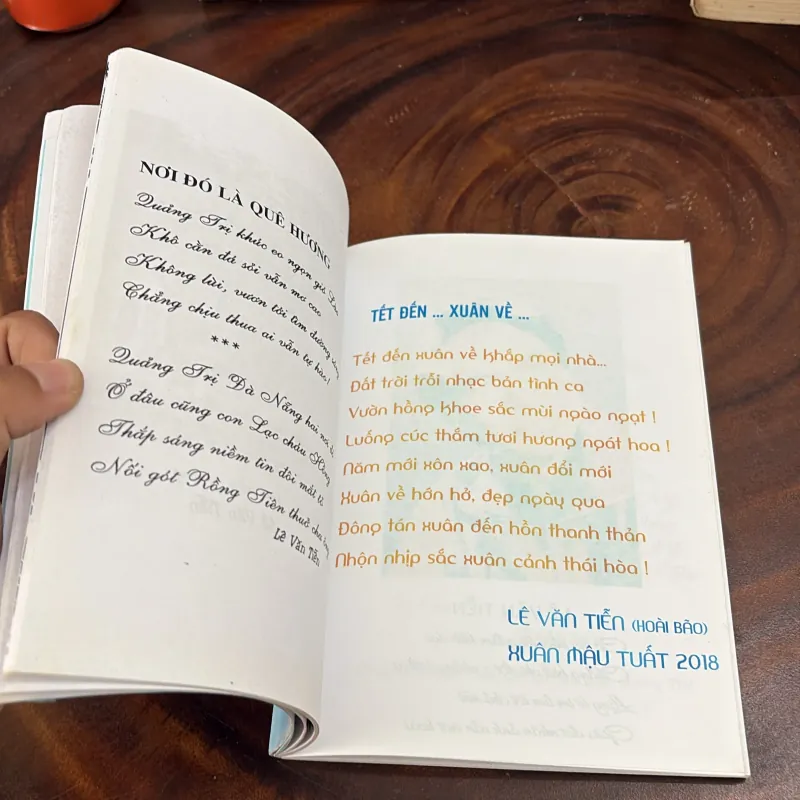 NƠI ĐÓ LÀ QUÊ HƯƠNG
Quảng Trị khúc eo ngọn gió Lào
Khô cằn đá sỏi vẫn mơ cao
Không lùi, vươn tới tìm đường
Chẳng chịu thua ai vẫn tự hào!
***
Quảng Trị Đà Nẵng hai
Ở đâu cũng con Lạc cháu Hồng
Thắp sáng niềm tin đôi mắt
Nối gót Rồng Tiên thuở cha
Lê Văn Tiễn
TẾT ĐẾN ... XUÂN VỀ ...
Tết đến xuân về khắp mọi nhà...
Đất trời trỗi nhạc bản tình ca
Vườn hồng khoe sắc mùi ngào ngạt !
Luống cúc thắm tươi hương ngát hoa !
Năm mới xôn xao, xuân đổi mới
Xuân về hớn hở, đẹp ngày qua
Đông tán xuân đến hồn thanh thản
Nhộn nhịp sắc xuân cảnh thái hòa !
LÊ VĂN TIỄN (HOÀI BÃO)
XUÂN MẬU TUẤT 2018